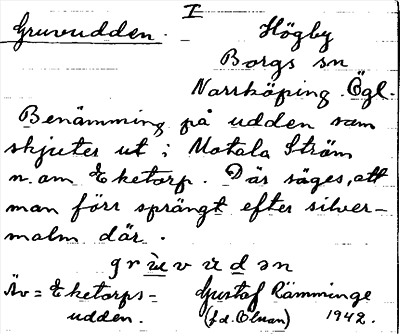 I
Gruvudden. Högby
Borgs sn
Norrköping. Ögl.
Benämning på udden som
skjuter ut i Motala Ström
n. om Eketorp. Där säges, att
man förr sprängt efter silver-
malm där.
grùvùdən
Äv = Eketorps- Gustaf Rämminge
udden. (f.d. Elvan) 1942.